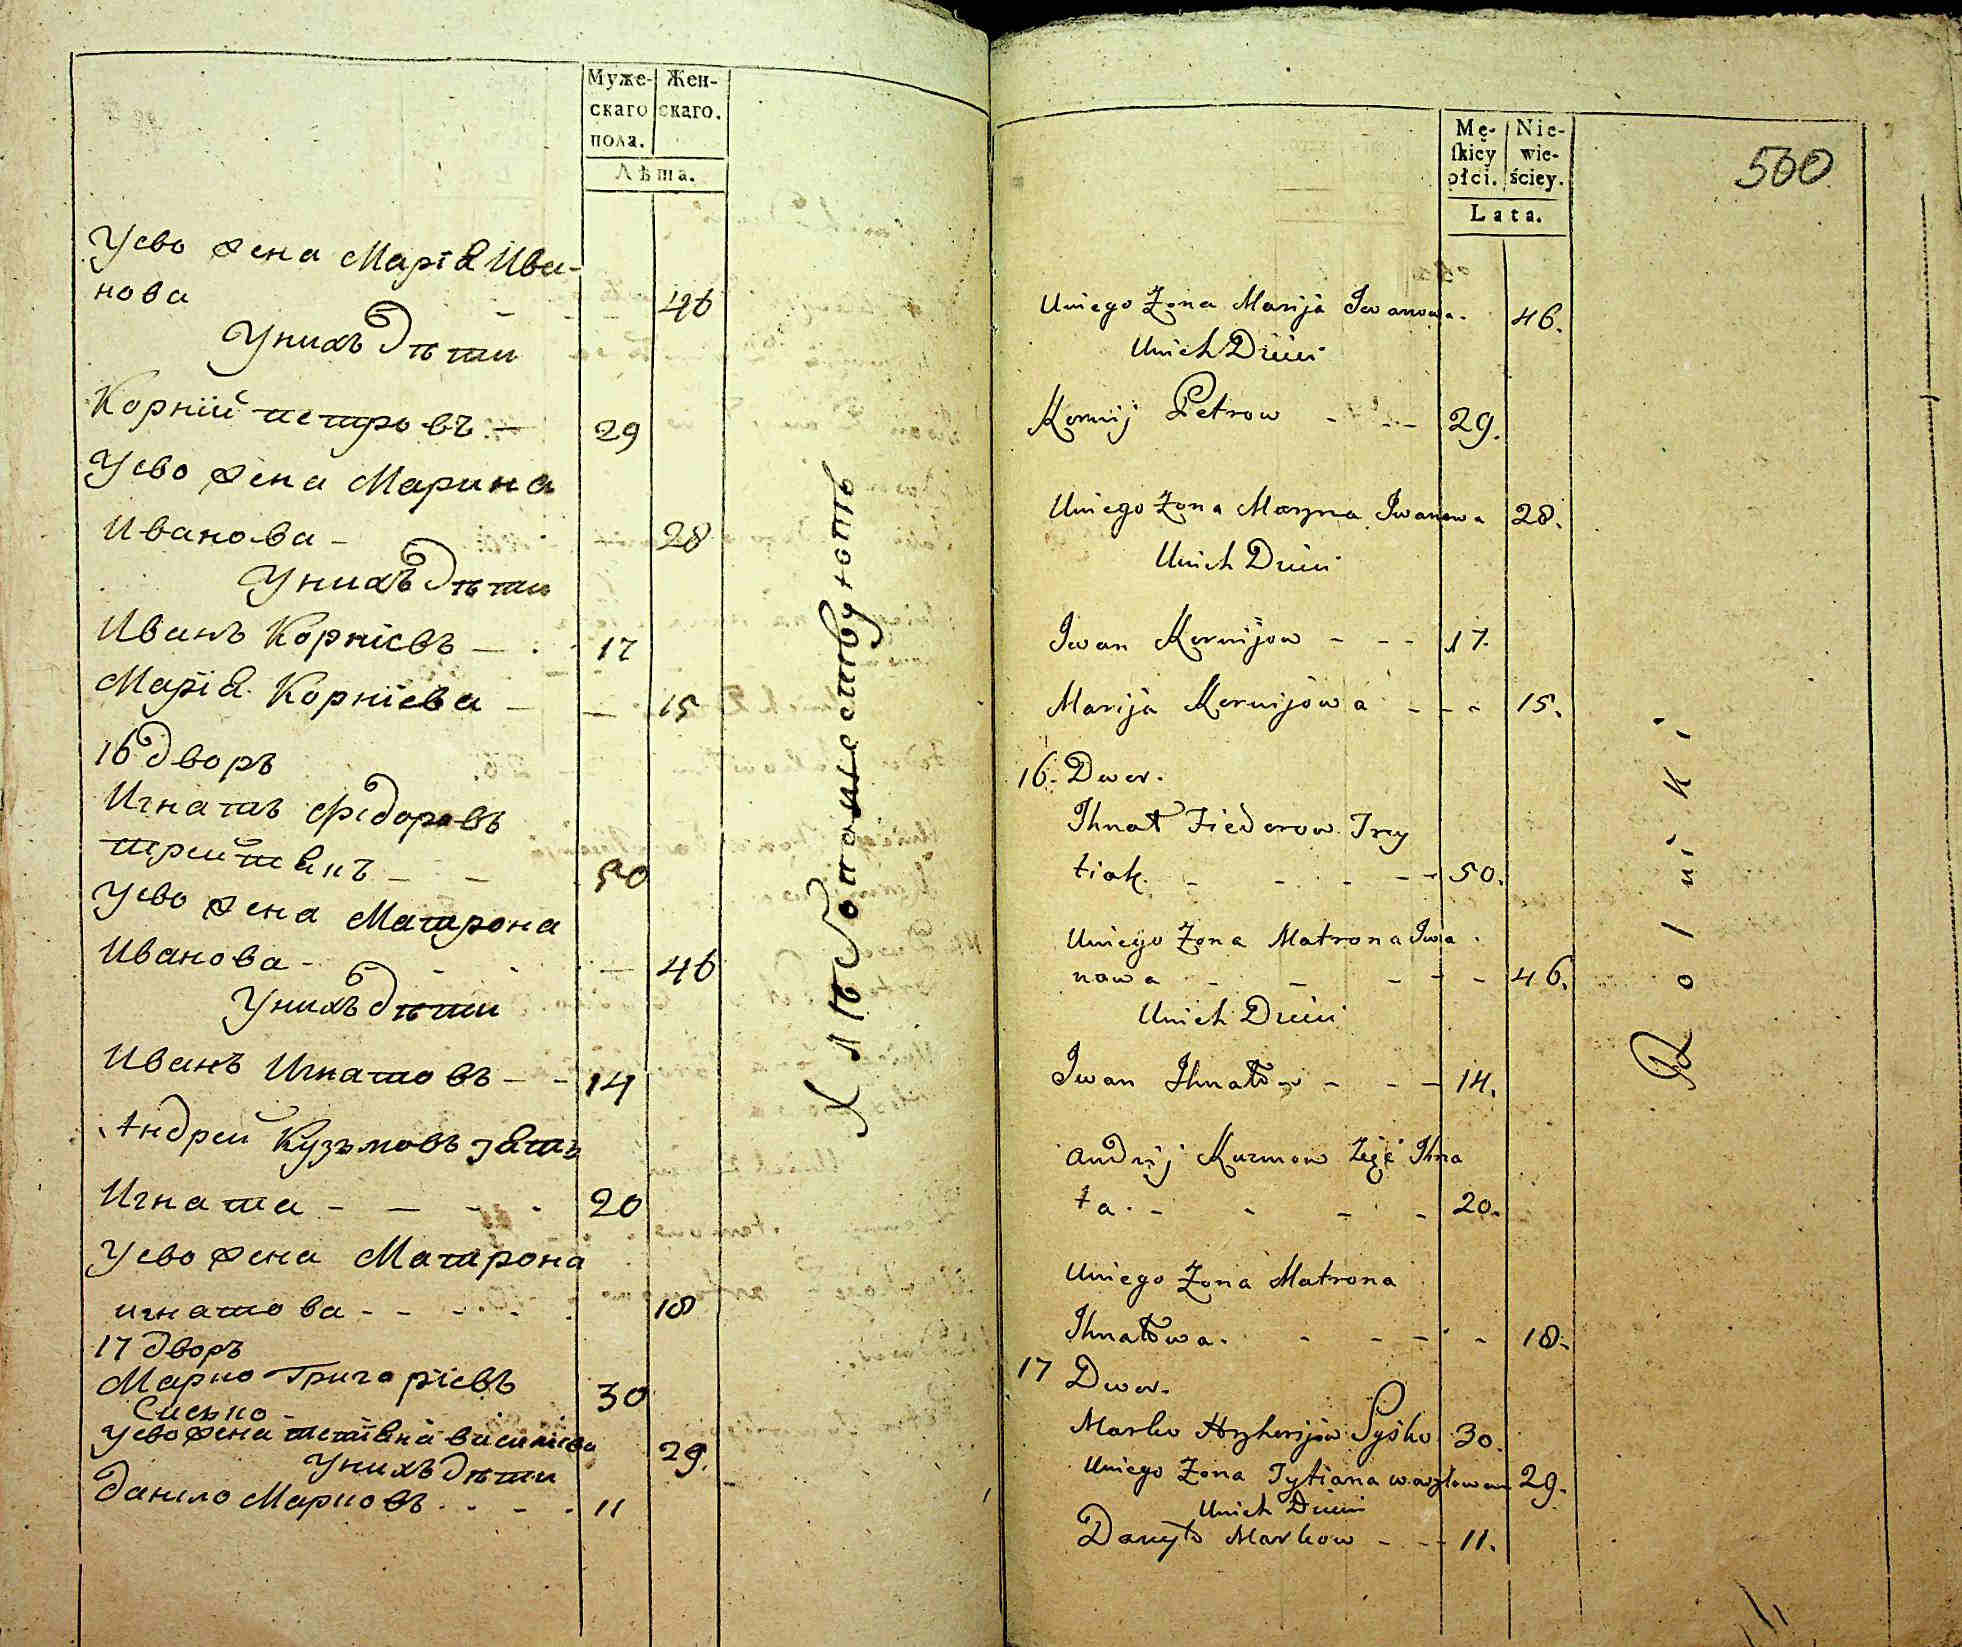 Муже-
скаго
пола.
Жен-
скаго.
Лѣта.
Уево жена Марія Ива-
нова 46
Унихъ дѣти
Корній петровъ - 29
Уево жена Марина
Иванова - 28
Унихъ дѣти
Иванъ Корніевъ - 17
Марія Корніева - - 15
16 дворъ
Игнатъ Фѣдоровъ
- - 50
Уево жена Матрона
Иванова - - - - 46
Унихъ дѣти
Иванъ Игнатовъ - - 14
Андрей Кузьмовъ зять
Игната - - - - 20
Уево жена Матрона
игнатова - - - - 18
17 дворъ
Марко Григоріевъ 30
Сисько -
Уево жена 29.
Унихъ дѣти
Данило Марковъ - - - 11
Хлѣбопашествуютъ
Mę-
skiey
płci.
Nie-
wie-
ściey.
Lata.
500
Uniego Żona Marija Iwanowa. 46.
Unich Dzieci
Kornij Petrow - - - 29.
Uniego Żona Maryna Iwanowa 28.
Unich Dzieci
Iwan Kornijow - - - 17.
Marija Kornijowa - - - 15.
16. Dwor.
Ihnat Fiedorow Try
tiak. - - - - - 50.
Uniego Żona Matrona Iwa
nowa - - - - - 46.
Unich Dzieci
Iwan Ihnatow - - - 14.
Andrij Kuzmow Zięć Ihna
ta. - - - - 20.
Uniego Żona Matrona
Ihnatowa. - - - - 18.
17 Dwor.
Marko Hryhorijow Syśko 30.
Uniego Żona Tytiana 29.
Unich Dzieci
Danyło Markow - - - 11.
Rolniki